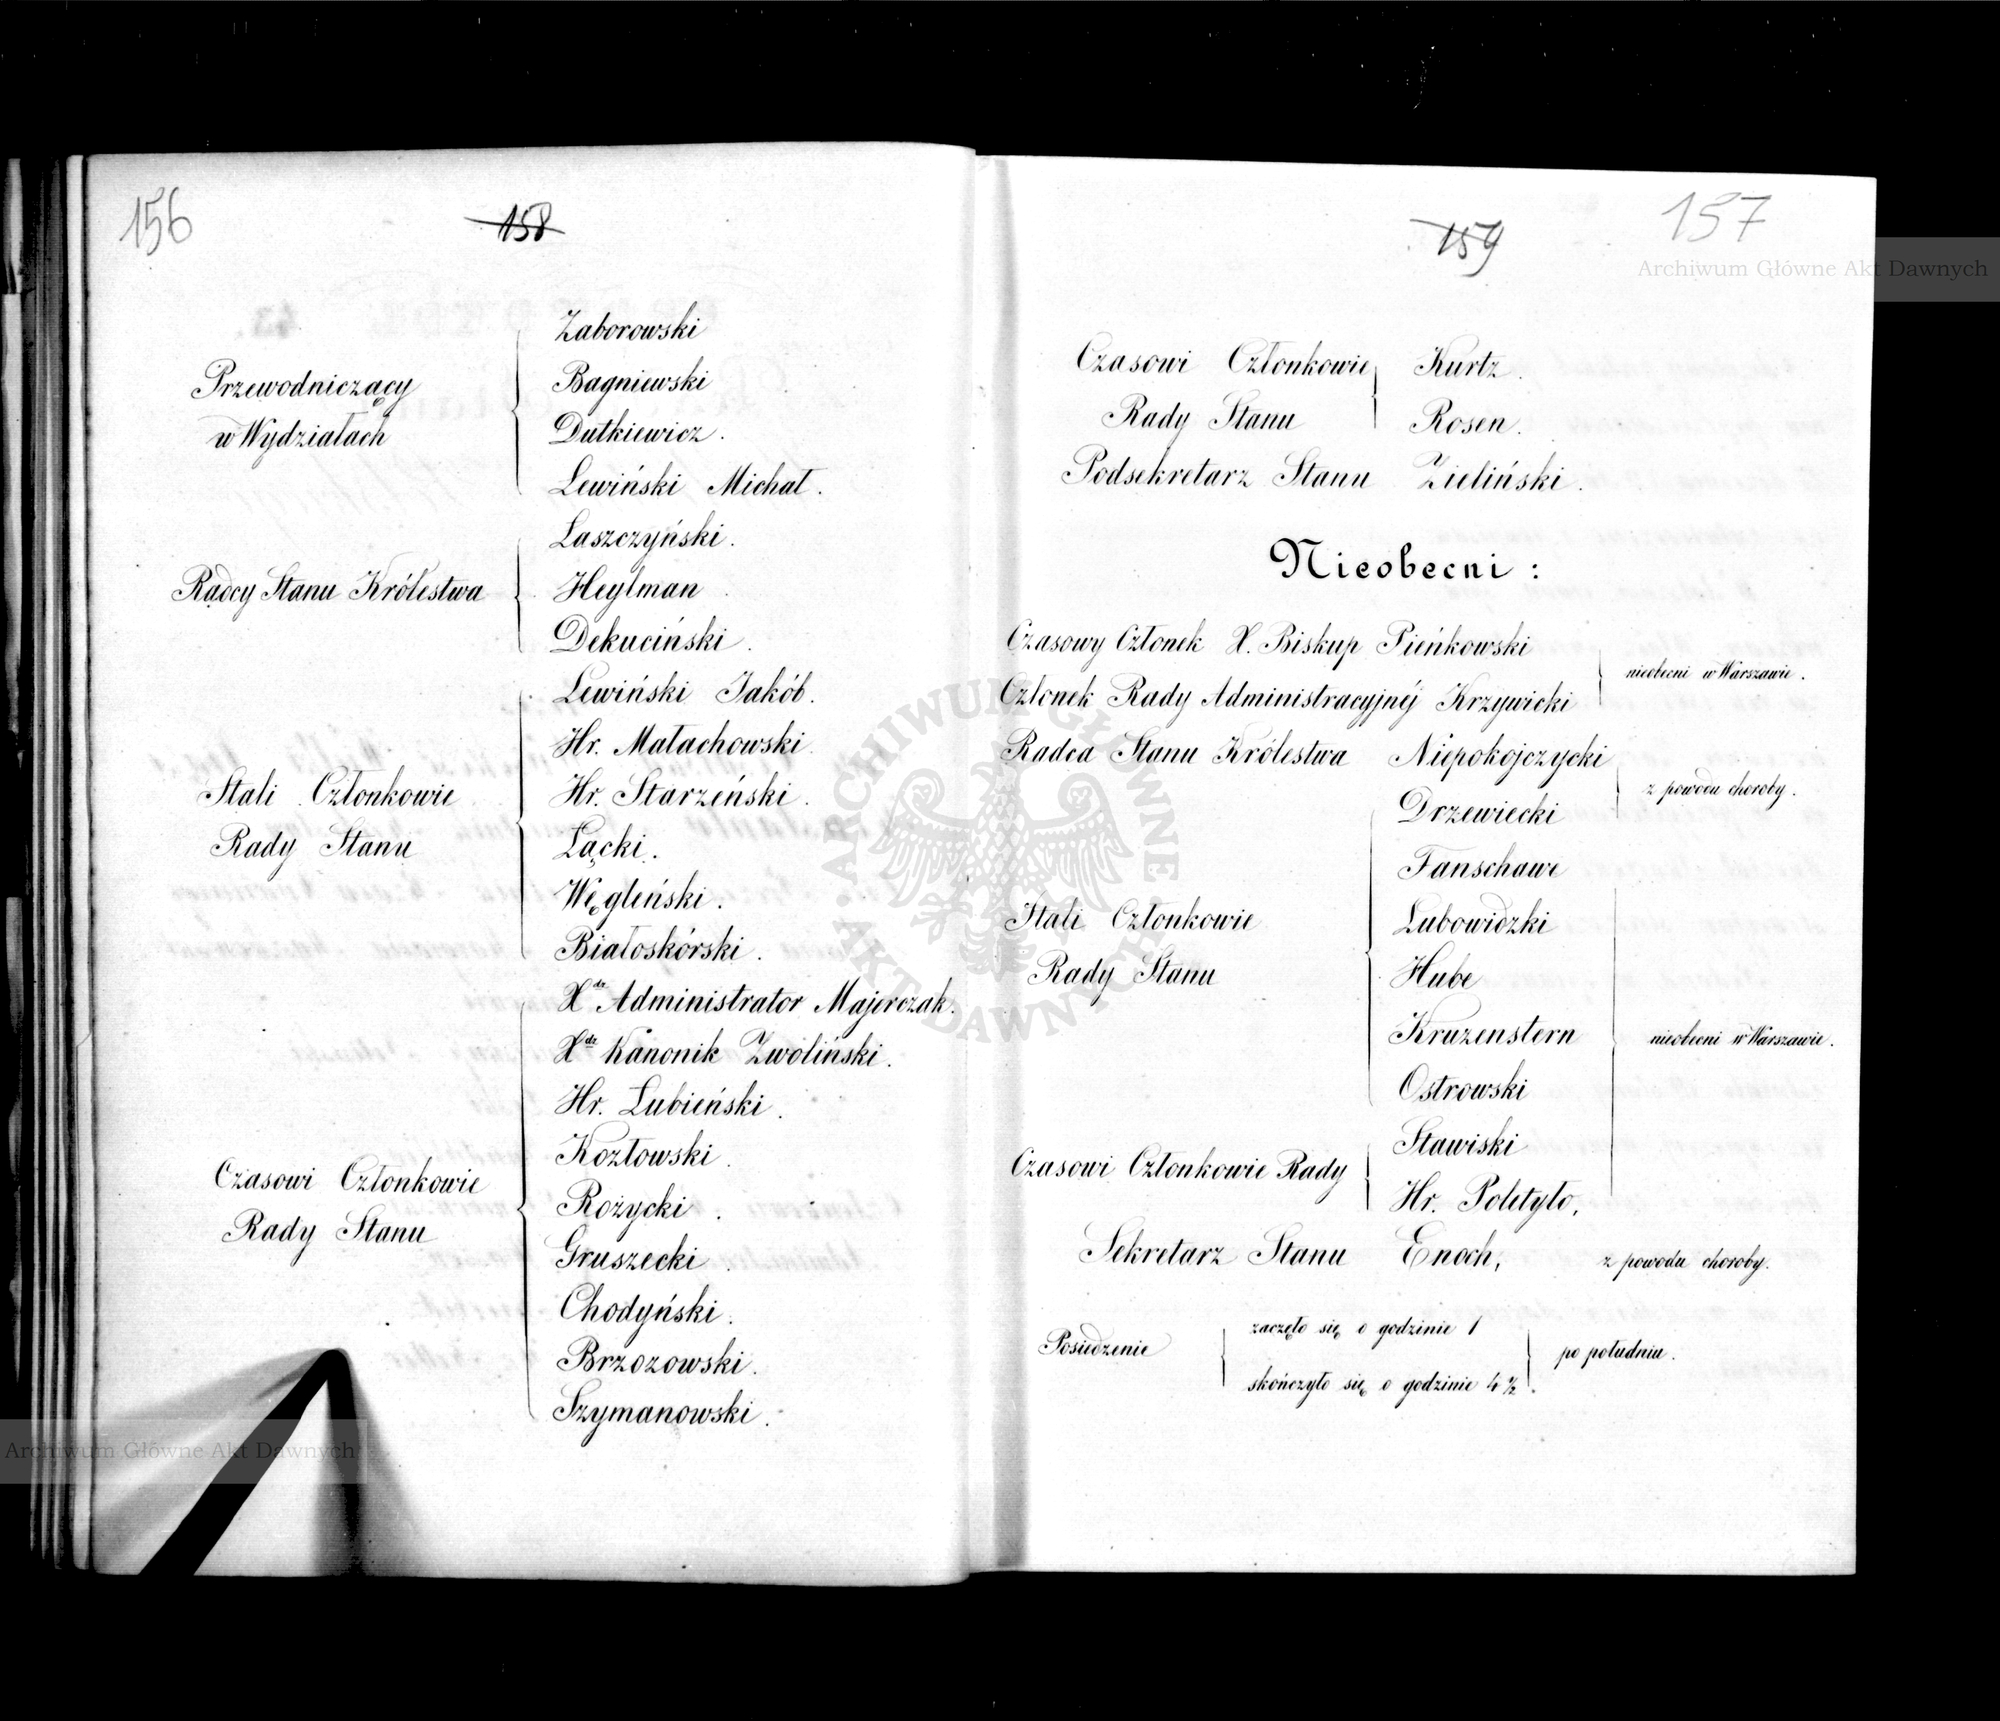 156
158
Przewodniczący
w Wydziałach
Zaborowski
Bagniewski
Dutkiewicz.
Lewiński Michał.
Radcy Stanu Królestwa
Laszczyński.
Heylman
Dekuciński.
Stali Członkowie
Rady Stanu
Lewiński Jakób.
Hr. Małachowski.
Hr. Starzeński.
Łącki.
Węgleński.
Białoskórski.
Czasowi Członkowie
Rady Stanu
Xdz Administrator Majerczak.
Xdz Kanonik Zwoliński.
Hr. Łubieński.
Kozłowski.
Rożycki.
Gruszecki.
Chodyński.
Brzozowski.
Szymanowski.
157
159
Archiwum Główne Akt Dawnych
Czasowi Członkowie
Rady Stanu
Kurtz.
Rosen.
Podsekretarz Stanu Zieliński.
Nieobecni:
Czasowy Członek X. Biskup Pieńkowski
Członek Rady Administracyjnéj Krzywicki
nieobecni w Warszawie.
Radca Stanu Królestwa Niepokojczycki
Drzewiecki
z powodu choroby.
Stali Członkowie
Rady Stanu
Fanschawe
Lubowidzki
Hube
Kruzenstern
Ostrowski
nieobecni w Warszawie.
Czasowi Członkowie Rady
Stawiski
Hr. Poletyło,
Sekretarz Stanu Enoch, z powodu choroby.
Posiedzenie
zaczęło się o godzinie 1
skończyło się o godzinie 4 ½.
po południu.
ARCHIWUM GŁÓWNE AKT DAWNYCH
Archiwum Główne Akt Dawnych